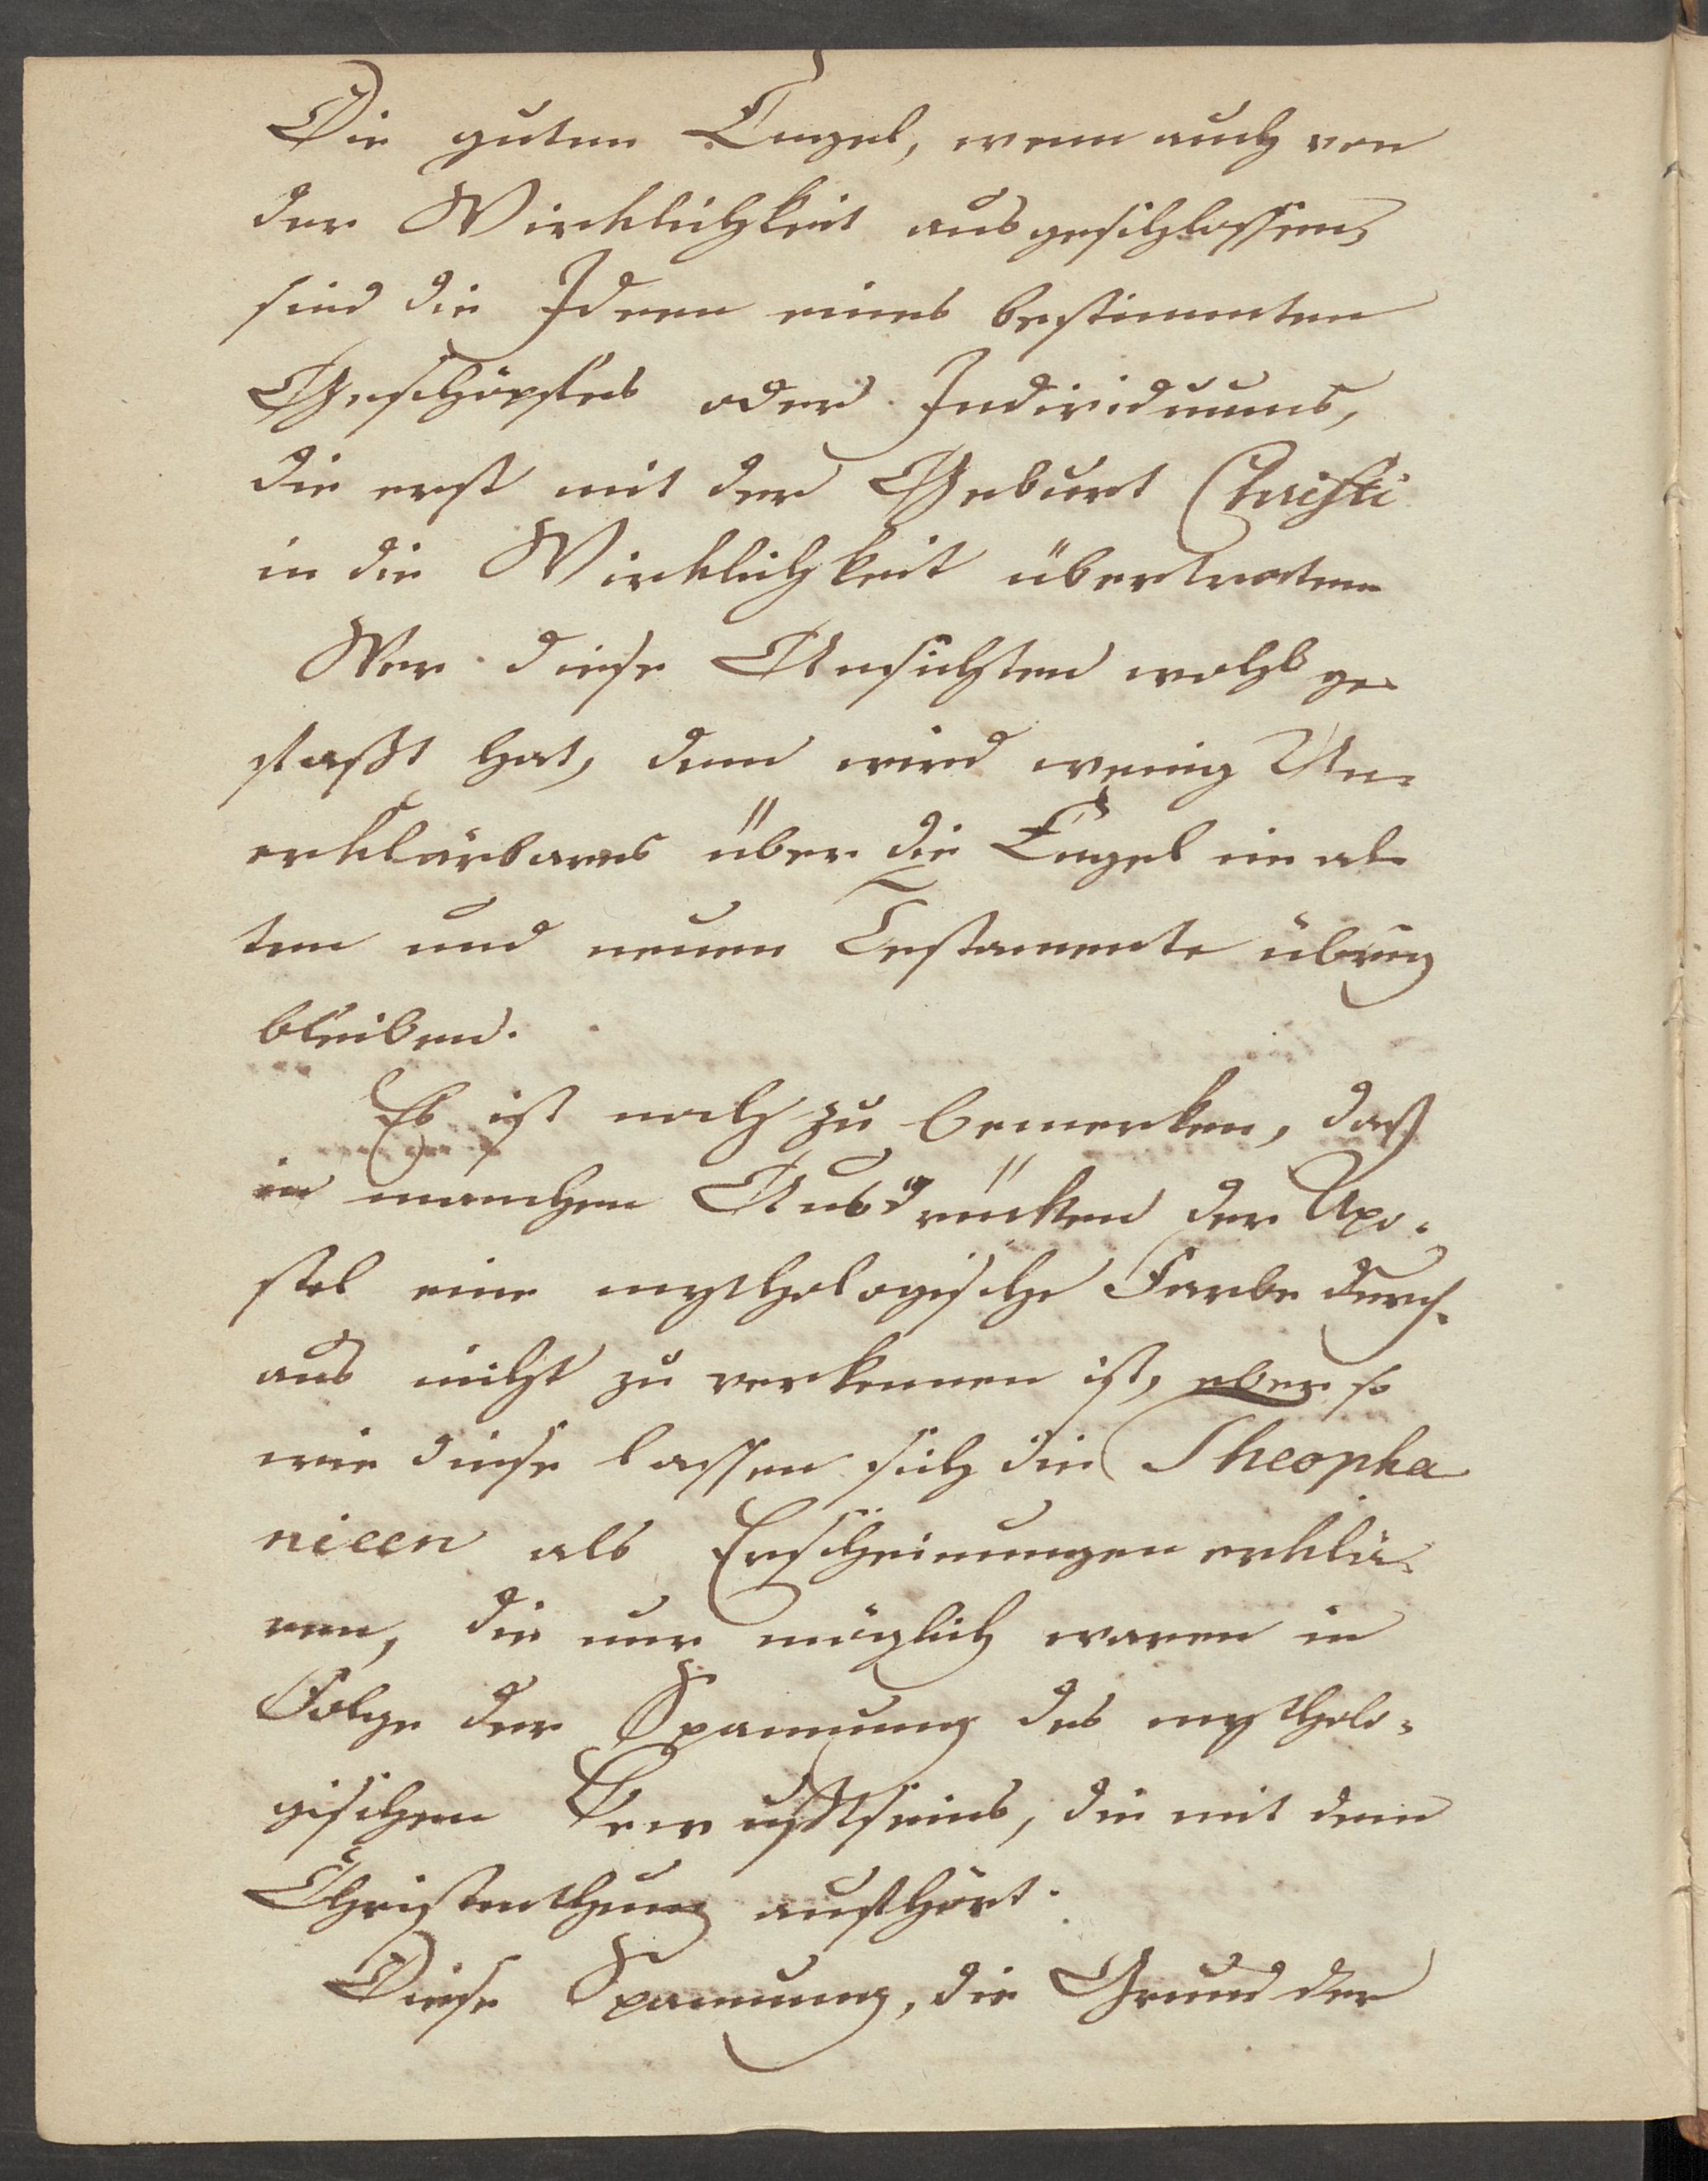 Die guten Engel, wenn auch von
der Wirklichkeit ausgeschlossen,
sind die Ideen eines bestimmten
Geschöpfes oder Individuums,
die erst mit der Geburt Christi
in die Wirklichkeit übertraten
Wer diese Ansichten wohl ge-
faßt hat, dem wird wenig Un-
erklärbares über die Engel im al-
ten und neuen Testamente übrig
bleiben.
Es ist noch zu bemerken, daß
in manchen Ausdrücken der Apo-
stel eine mythologische Farbe durch-
aus nicht zu verkennen ist, eben so
wie diese lassen sich die Theopha
nieen als Erscheinungen erklä-
ren, die nur möglich waren in
Folge der Spannung des mytholo-
gischen Bewußtseins, die mit dem
Christenthum aufhört.
Diese Spannung, die Grund der